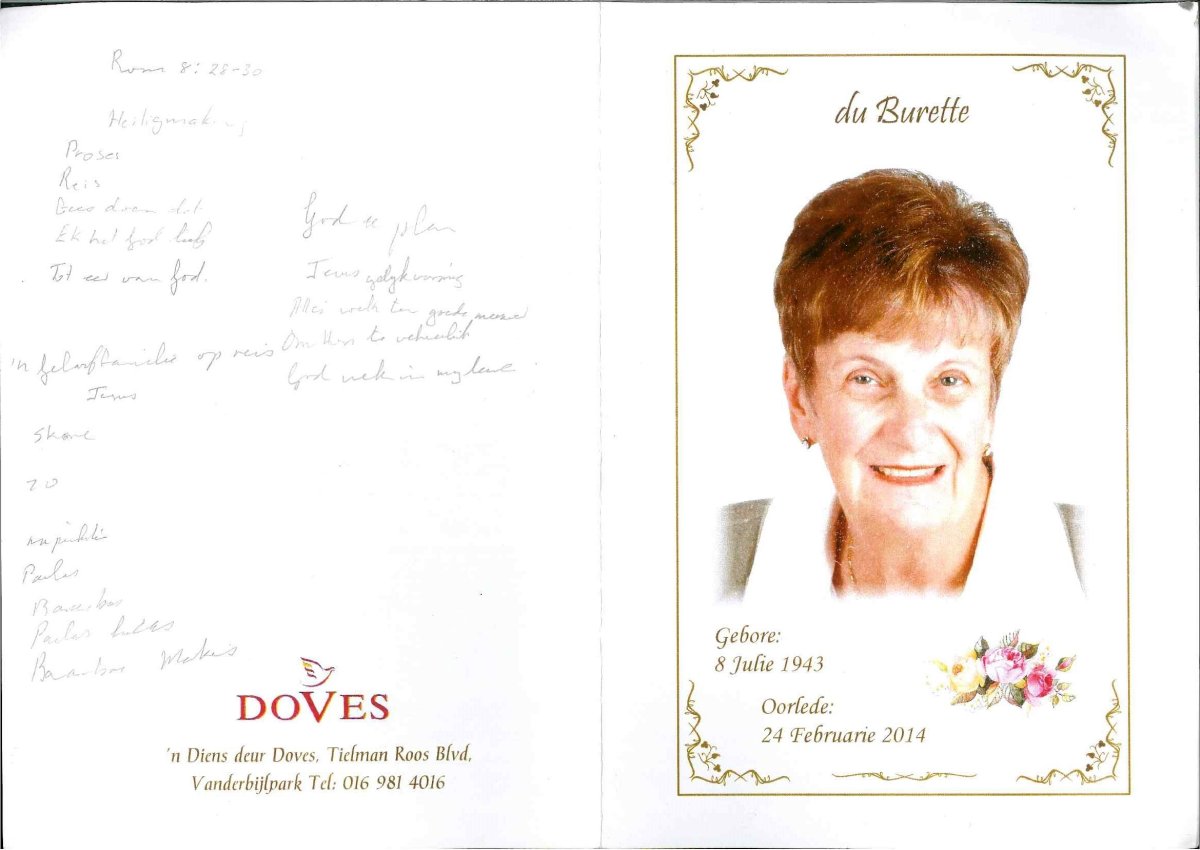 Rom 8:28-30
Heiligmaking
Proses
Reis
Gees doen dit
Ek het God lief
Tot eer van God.
'n geloofsfamilie op reis
Jesus
70
Paulus
Barnabas
Paulus
Markus
God se plan
Jesus gelykvormig
Alles werk ten goede
Om Hom te verheerlik
God werk in my lewe
DOVES
'n Diens deur Doves, Tielman Roos Blvd,
Vanderbijlpark Tel: 016 981 4016
du Burette
Gebore:
8 Julie 1943
Oorlede:
24 Februarie 2014